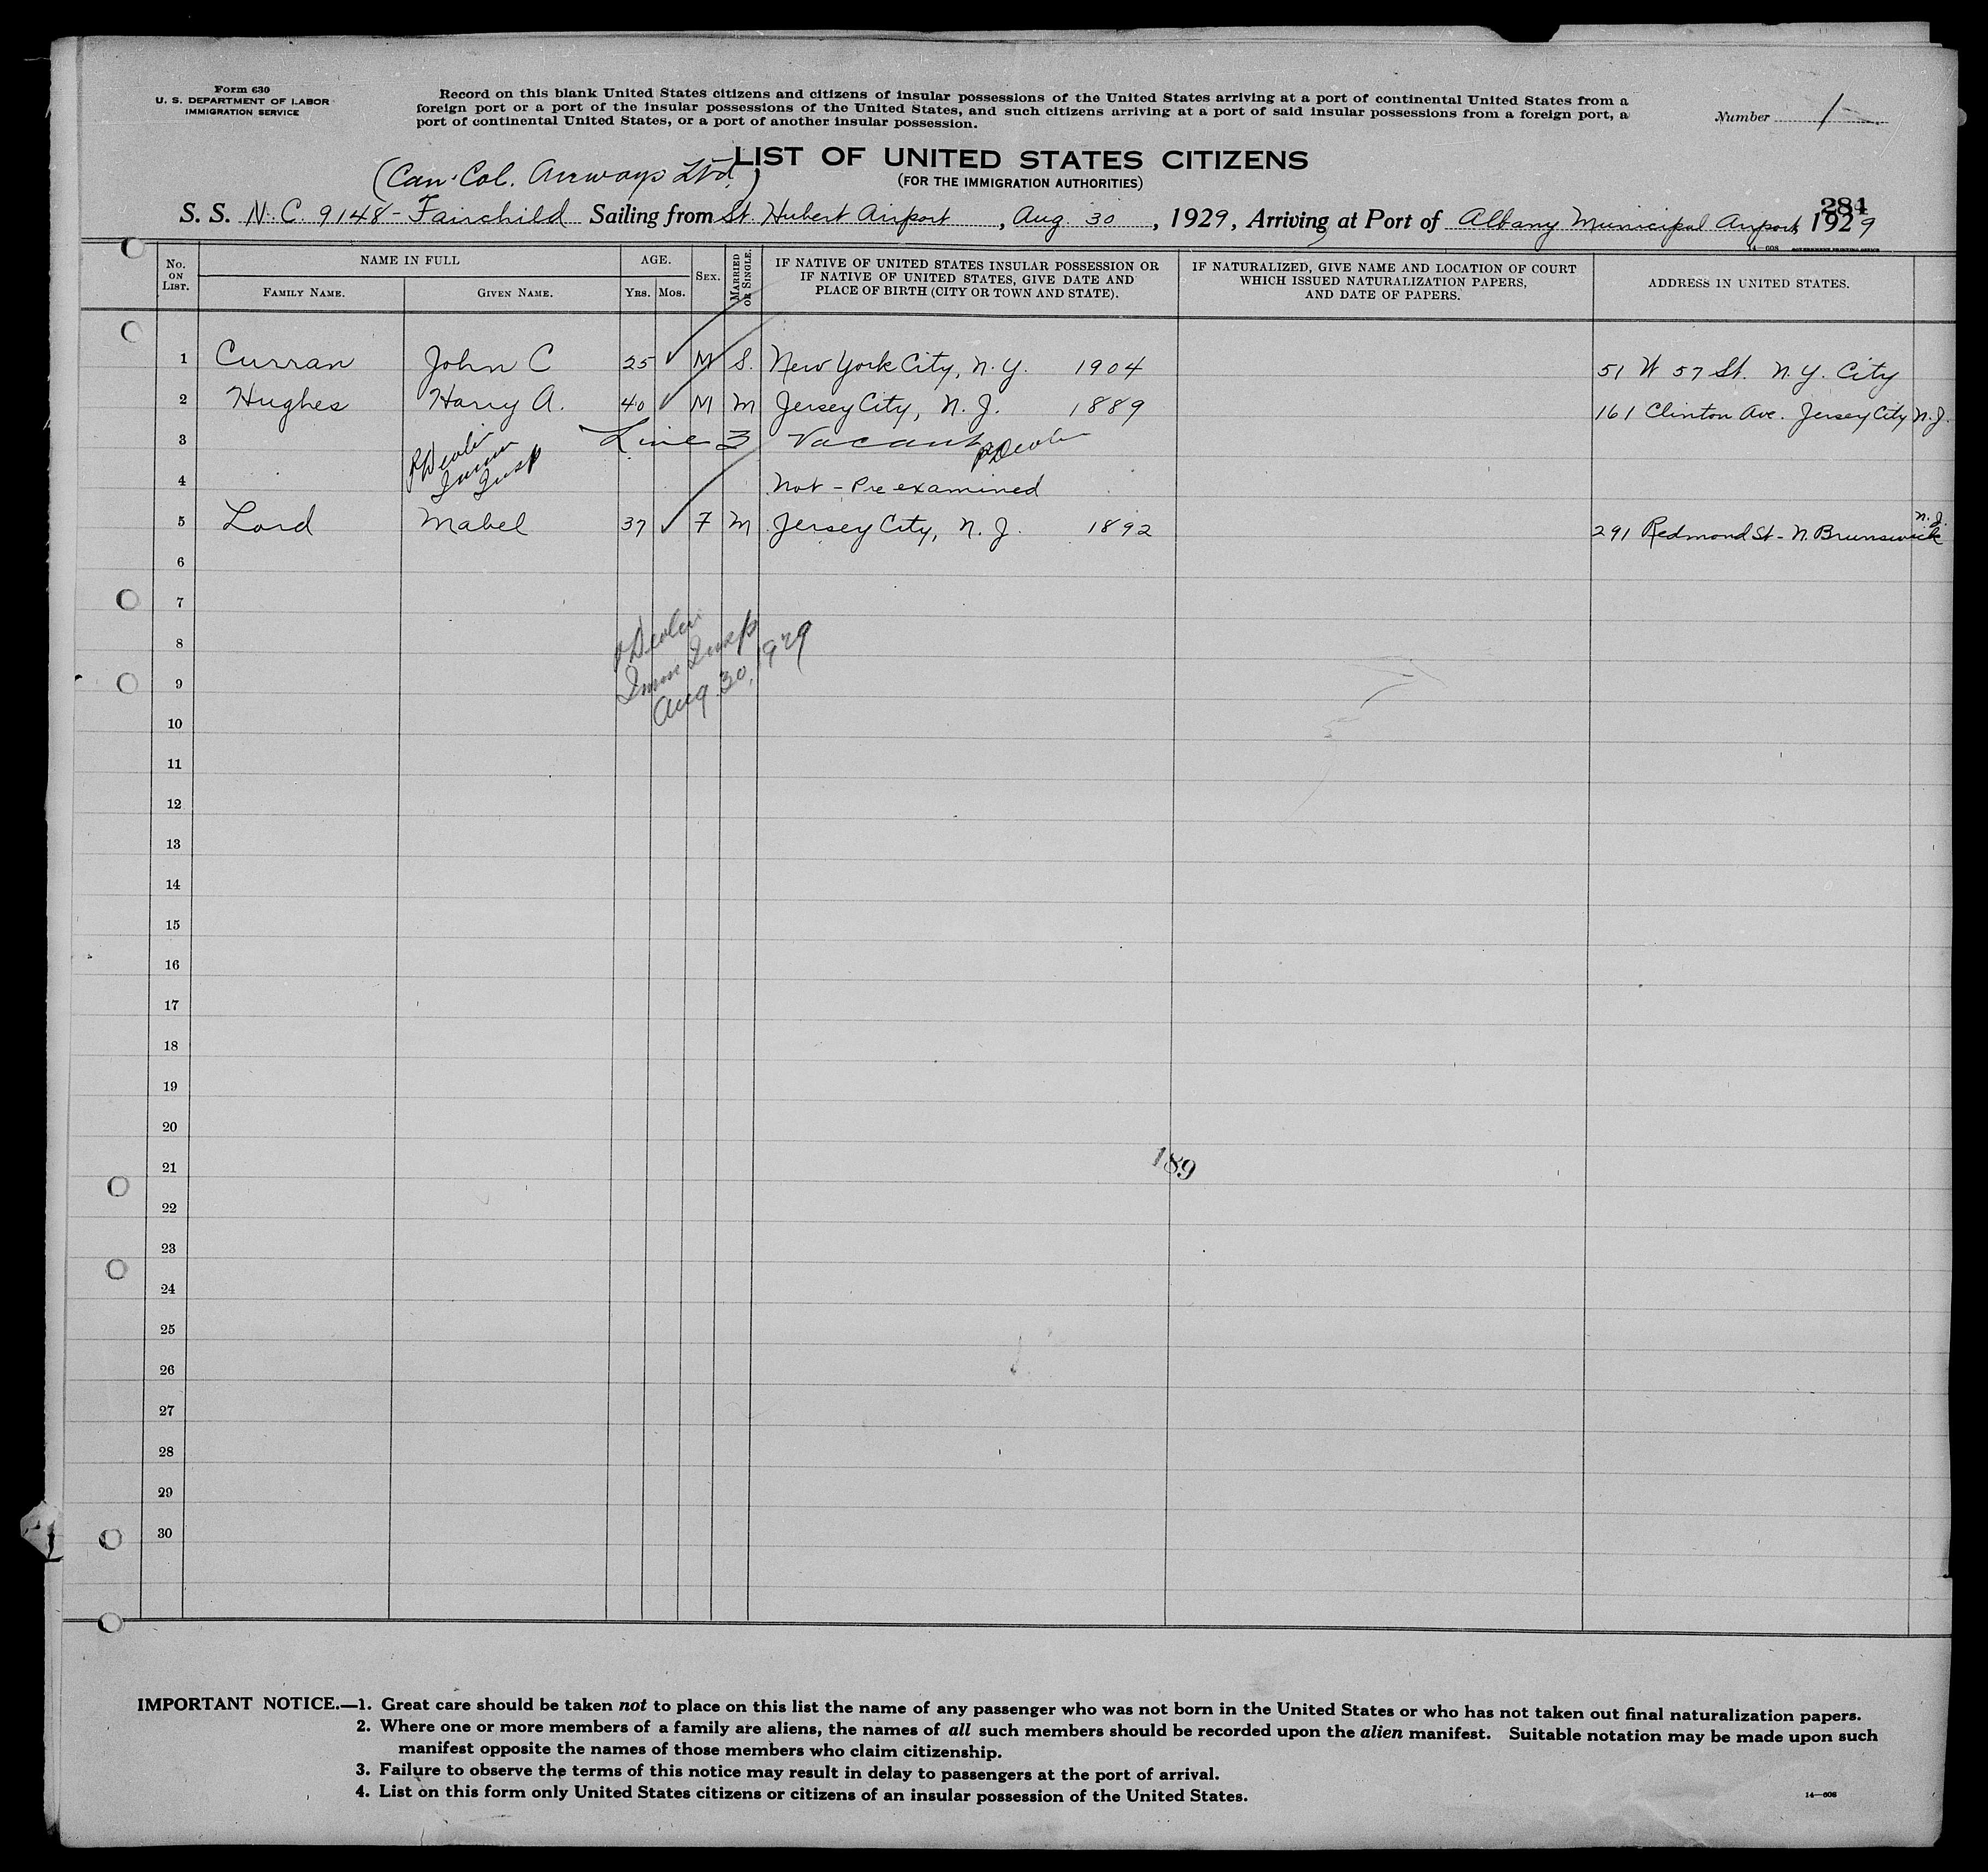 Form 630
U. S. DEPARTMENT OF LABOR
IMMIGRATION SERVICE
Record on this blank United States citizens and citizens of insular possessions of the United States arriving at a port of continental United States from a
foreign port or a port of the insular possessions of the United States, and such citizens arriving at a port of said insular possessions from a foreign port, a
port of continental United States, or a port of another insular possession.
Number 1
LIST OF UNITED STATES CITIZENS
(FOR THE IMMIGRATION AUTHORITIES)
(Can. Col. Airways Ltd.)
284
S. S. N. C. 9148 - Fairchild Sailing from St. Hubert Airport, Aug. 30, 1929, Arriving at Port of Albany Municipal Airport, 1929
14—608 GOVERNMENT PRINTING OFFICE
No. ON LIST. NAME IN FULL AGE. SEX. MARRIED OR SINGLE. IF NATIVE OF UNITED STATES INSULAR POSSESSION OR IF NATIVE OF UNITED STATES, GIVE DATE AND PLACE OF BIRTH (CITY OR TOWN AND STATE). IF NATURALIZED, GIVE NAME AND LOCATION OF COURT WHICH ISSUED NATURALIZATION PAPERS, AND DATE OF PAPERS. ADDRESS IN UNITED STATES.
FAMILY NAME. GIVEN NAME. YRS. MOS.
1 Curran John C 25 ✓ M S. New York City, N.Y. 1904 51 W 57 St. N.Y. City
2 Hughes Harry A. 40 ✓ M M Jersey City, N.J. 1889 161 Clinton Ave. Jersey City N.J.
3 Line 3 Vacant
Immn
Insp
4 Not - Pre examined
5 Lord Mabel 37 ✓ F M Jersey City, N.J. 1892 291 Redmond St - N. Brunswick N.J.
6
7
8
Imm Insp
Aug. 30, 1929
9
10
11
12
13
14
15
16
17
18
19
20
21
189
22
23
24
25
26
27
28
29
30
IMPORTANT NOTICE.—1. Great care should be taken not to place on this list the name of any passenger who was not born in the United States or who has not taken out final naturalization papers.
2. Where one or more members of a family are aliens, the names of all such members should be recorded upon the alien manifest. Suitable notation may be made upon such
manifest opposite the names of those members who claim citizenship.
3. Failure to observe the terms of this notice may result in delay to passengers at the port of arrival.
4. List on this form only United States citizens or citizens of an insular possession of the United States.
14—608